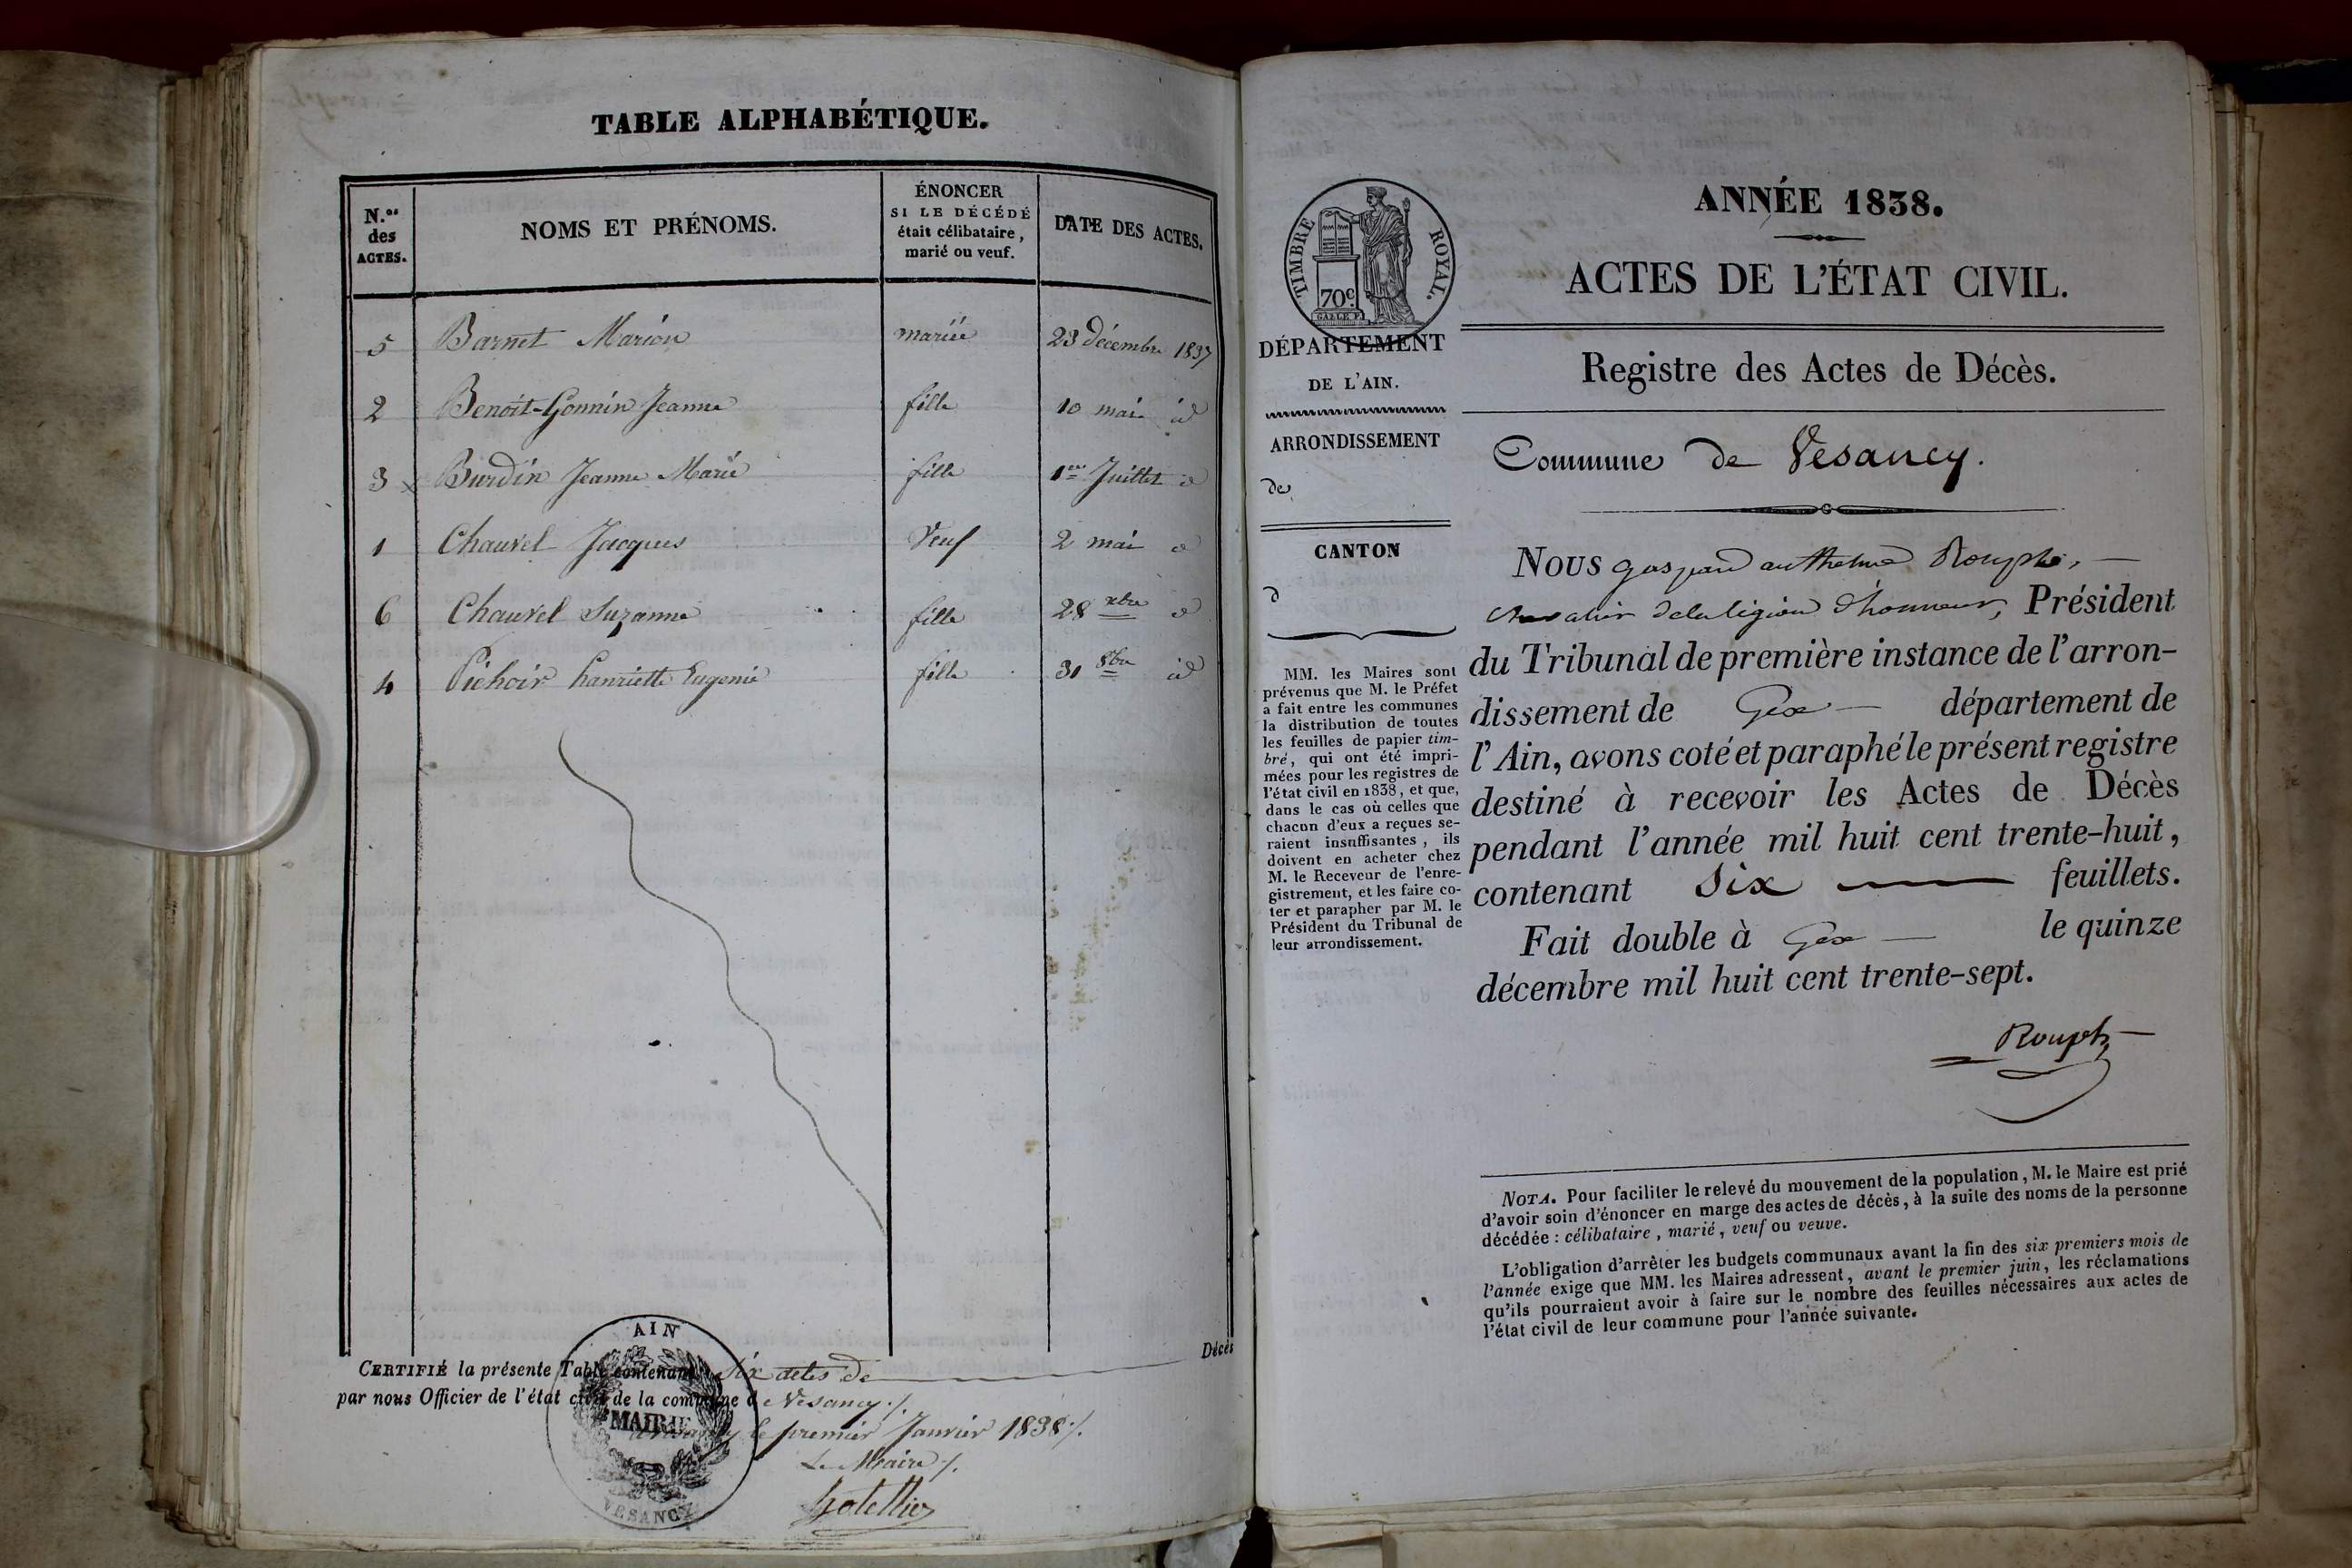 TABLE ALPHABÉTIQUE.
N.os des ACTES.
NOMS ET PRÉNOMS.
ÉNONCER
SI LE DÉCÉDÉ
était célibataire,
marié ou veuf.
DATE DES ACTES.
5 Barnet Marion mariée 23 décembre 1837
2 Benoit-Gonnin Jeanne fille 10 mai id
3 Burdin Jeanne Marie fille 1er Juillet id
1 Chauvel Jacques Veuf 2 mai id
6 Chauvel Suzanne fille 28 xbre id
4 Pichoir henriette Eugenie fille 31 8bre id
CERTIFIÉ la présente Table contenant Six actes de Décès
par nous Officier de l'état civil de la commune de Vesancy
le premier Janvier 1838
Le Maire
AIN
MAIRIE
VESANCY
TIMBRE ROYAL.
70c
GALLE F.
DÉPARTEMENT
DE L'AIN.
ARRONDISSEMENT
de
CANTON
d
MM. les Maires sont
prévenus que M. le Préfet
a fait entre les communes
la distribution de toutes
les feuilles de papier tim-
bré, qui ont été impri-
mées pour les registres de
l'état civil en 1838, et que,
dans le cas où celles que
chacun d'eux a reçues se-
raient insuffisantes, ils
doivent en acheter chez
M. le Receveur de l'enre-
gistrement, et les faire co-
ter et parapher par M. le
Président du Tribunal de
leur arrondissement.
ANNÉE 1838.
ACTES DE L'ÉTAT CIVIL.
Registre des Actes de Décès.
Commune de Vesancy.
NOUS gaspard anthelme Rouph,
chevalier de la légion d'honneur, Président
du Tribunal de première instance de l'arron-
dissement de Gex département de
l'Ain, avons coté et paraphé le présent registre
destiné à recevoir les Actes de Décès
pendant l'année mil huit cent trente-huit,
contenant Six feuillets.
Fait double à Gex le quinze
décembre mil huit cent trente-sept.
NOTA. Pour faciliter le relevé du mouvement de la population, M. le Maire est prié
d'avoir soin d'énoncer en marge des actes de décès, à la suite des noms de la personne
décédée : célibataire, marié, veuf ou veuve.
L'obligation d'arrêter les budgets communaux avant la fin des six premiers mois de
l'année exige que MM. les Maires adressent, avant le premier juin, les réclamations
qu'ils pourraient avoir à faire sur le nombre des feuilles nécessaires aux actes de
l'état civil de leur commune pour l'année suivante.